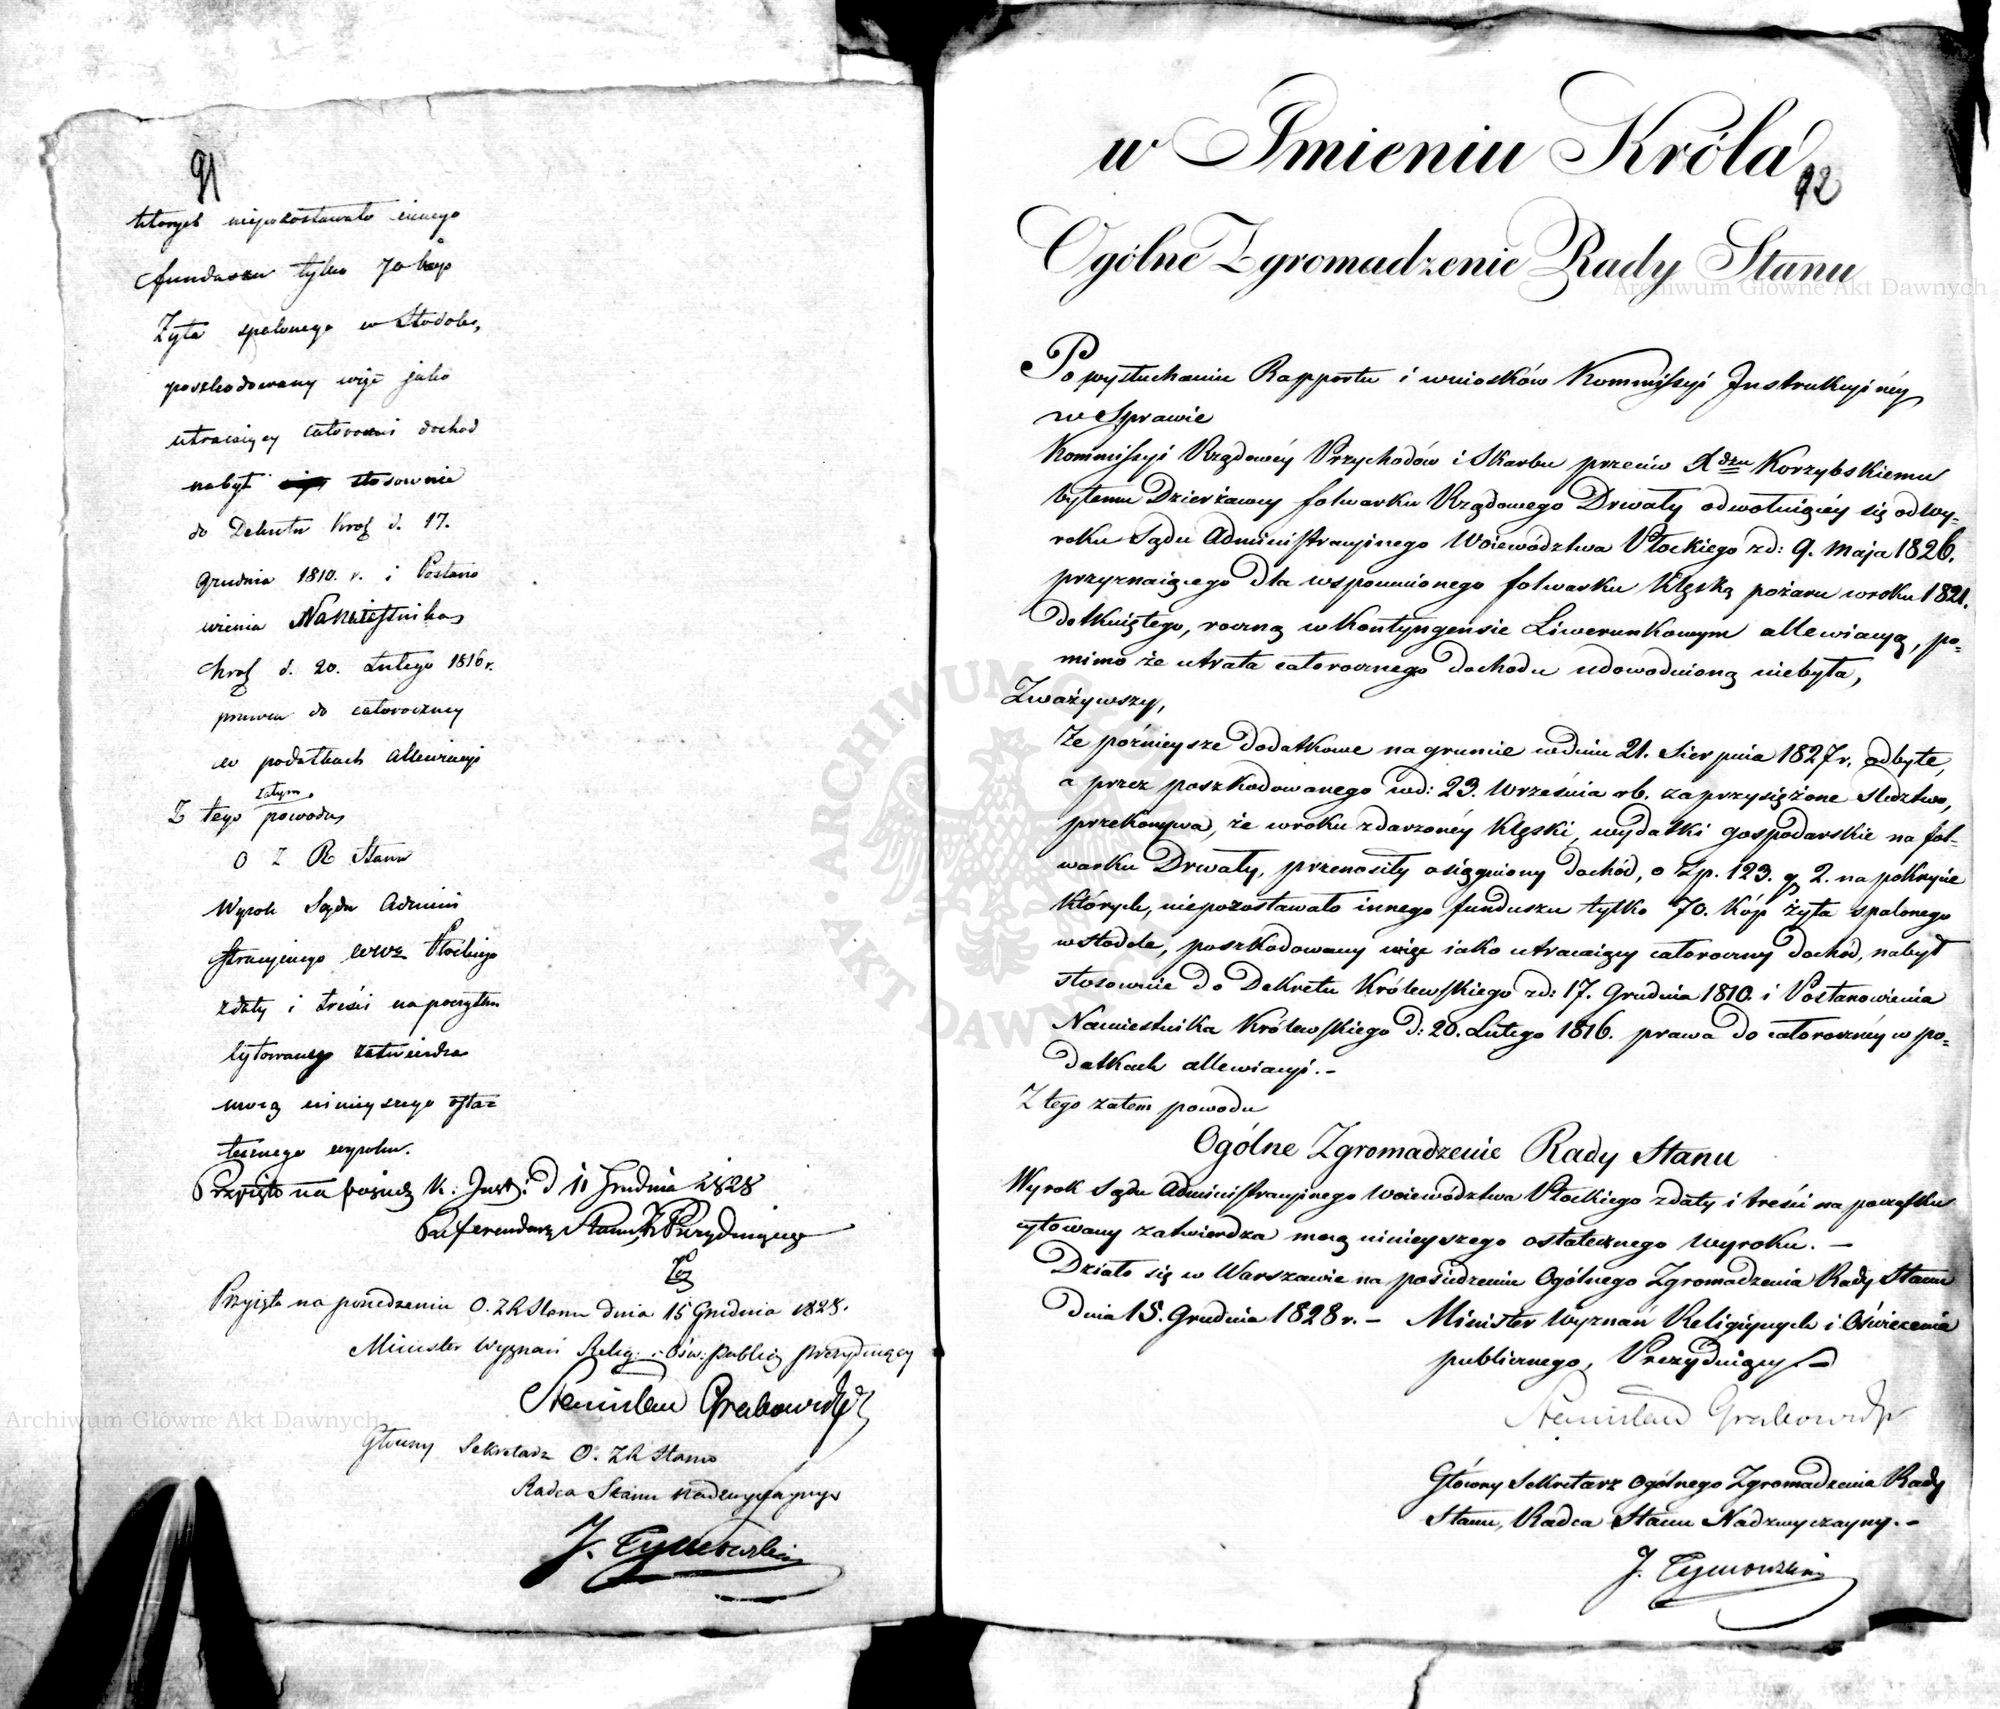 91
których niepozostawało innego
funduszu tylko 70 kóp
Żyta spalonego w Stodole,
poszkodowany więc jako
utracaiący całoroczni dochod
nabył stosownie
do Dekretu Kroł d. 17.
Grudnia 1810. r. i Postano
wienia Namiestnika
Kroł d. 20. Lutego 1816 r.
prawa do całoroczney
w podatkach allewiacyi
Z tego zatym powodu
O Z R Stanu
Wyrok Sądu Admini
stracyinego Wwa Płockiego
z daty i treści na początku
cytowanego zatwierdza
mocą ninieyszego osta=
tecznego wyroku.
Przyięto na posiedz K: Inst: d 11 Grudnia 1828
Referendarz Stanu Prezyduiący
Przyięto na posiedzeniu O. Z R Stanu dnia 15 Grudnia 1828.
Minister Wyznań Relig: i Ośw: Public Prezyduiący
Stanisław Grabowski
Główny Sekretarz O. Z R Stanu
Radca Stanu Nadzwyczayny
J. Tymowski
w Imieniu Króla
92
Ogólne Zgromadzenie Rady Stanu
Po wysłuchaniu Rapportu i wniosków Kommissyi Instrukcyiney
w Sprawie
Kommissyi Rządowey Przychodów i Skarbu przeciw Xdzu Korzybskiemu
byłemu Dzierżawcy folwarku Rządowego Drwały odwołuiącey się od wy=
roku Sądu Administracyinego Woiewództwa Płockiego z d: 9. Maja 1826.
przyznaiącego dla wspomnionego folwarku klęską pożaru w roku 1821.
dotkniętego, roczną w Kontyngensie Liwerunkowym allewiacyą, po=
mimo że utrata całorocznego dochodu udowodnioną niebyła,
Zważywszy,
Że późnieysze dodatkowe na gruncie w dniu 21. Sierpnia 1827 r. odbyte,
a przez poszkodowanego w d: 23. Września r b. zaprzysiężone śledztwo,
przekonywa, że w roku zdarzoney klęski, wydatki gospodarskie na fol=
warku Drwały, przenosiły osiągniony dochód, o Zp. 123. g 2. na pokrycie
których, niepozostawało innego funduszu tylko 70. kóp żyta spalonego
w stodole, poszkodowany więc iako utracaiący całoroczny dochód, nabył
stosownie do Dekretu Królewskiego z d: 17. Grudnia 1810. i Postanowienia
Namiestnika Królewskiego d: 20. Lutego 1816. prawa do całoroczney w po=
datkach allewiacyi. -
Z tego zatem powodu
Ogólne Zgromadzenie Rady Stanu
Wyrok Sądu Administracyinego Woiewództwa Płockiego z daty i treści na początku
cytowany zatwierdza mocą ninieyszego ostatecznego wyroku. -
Działo się w Warszawie na posiedzeniu Ogólnego Zgromadzenia Rady Stanu
dnia 15. Grudnia 1828 r. - Minister Wyznań Religijnych i Oświecenia
publicznego, Prezyduiący
Stanisław Grabowski
Główny Sekretarz Ogólnego Zgromadzenia Rady
Stanu, Radca Stanu Nadzwyczayny. -
J. Tymowski
Archiwum Główne Akt Dawnych
Archiwum Główne Akt Dawnych
ARCHIWUM GŁÓWNE AKT DAWNYCH